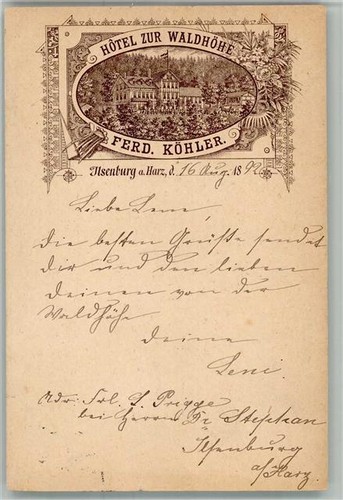 HÔTEL ZUR WALDHÖHE
FERD. KÖHLER.
Ilsenburg a. Harz, d. 16 Aug. 1892
Liebe Lene,
die besten Grüße sendet
dir und den lieben
deinen von der
Waldhöhe
deine
Leni
Adr. Frl. L. Prigge
bei Herrn Dr. Stephan
Ilsenburg
a/Harz.